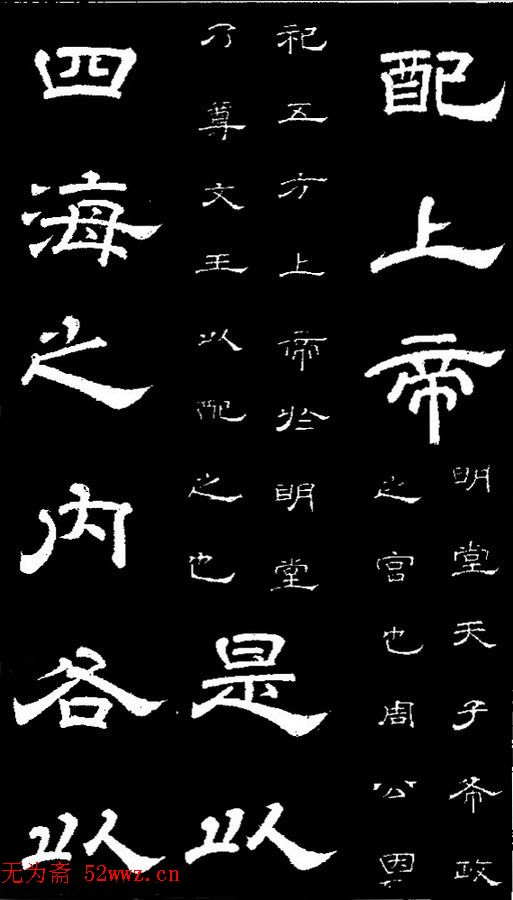 配上帝
明堂天子布政
之宫也周公因
祀五方上帝於明堂
乃尊文王以配之也
是以
四海之内各以
无为斋 52wwz.cn